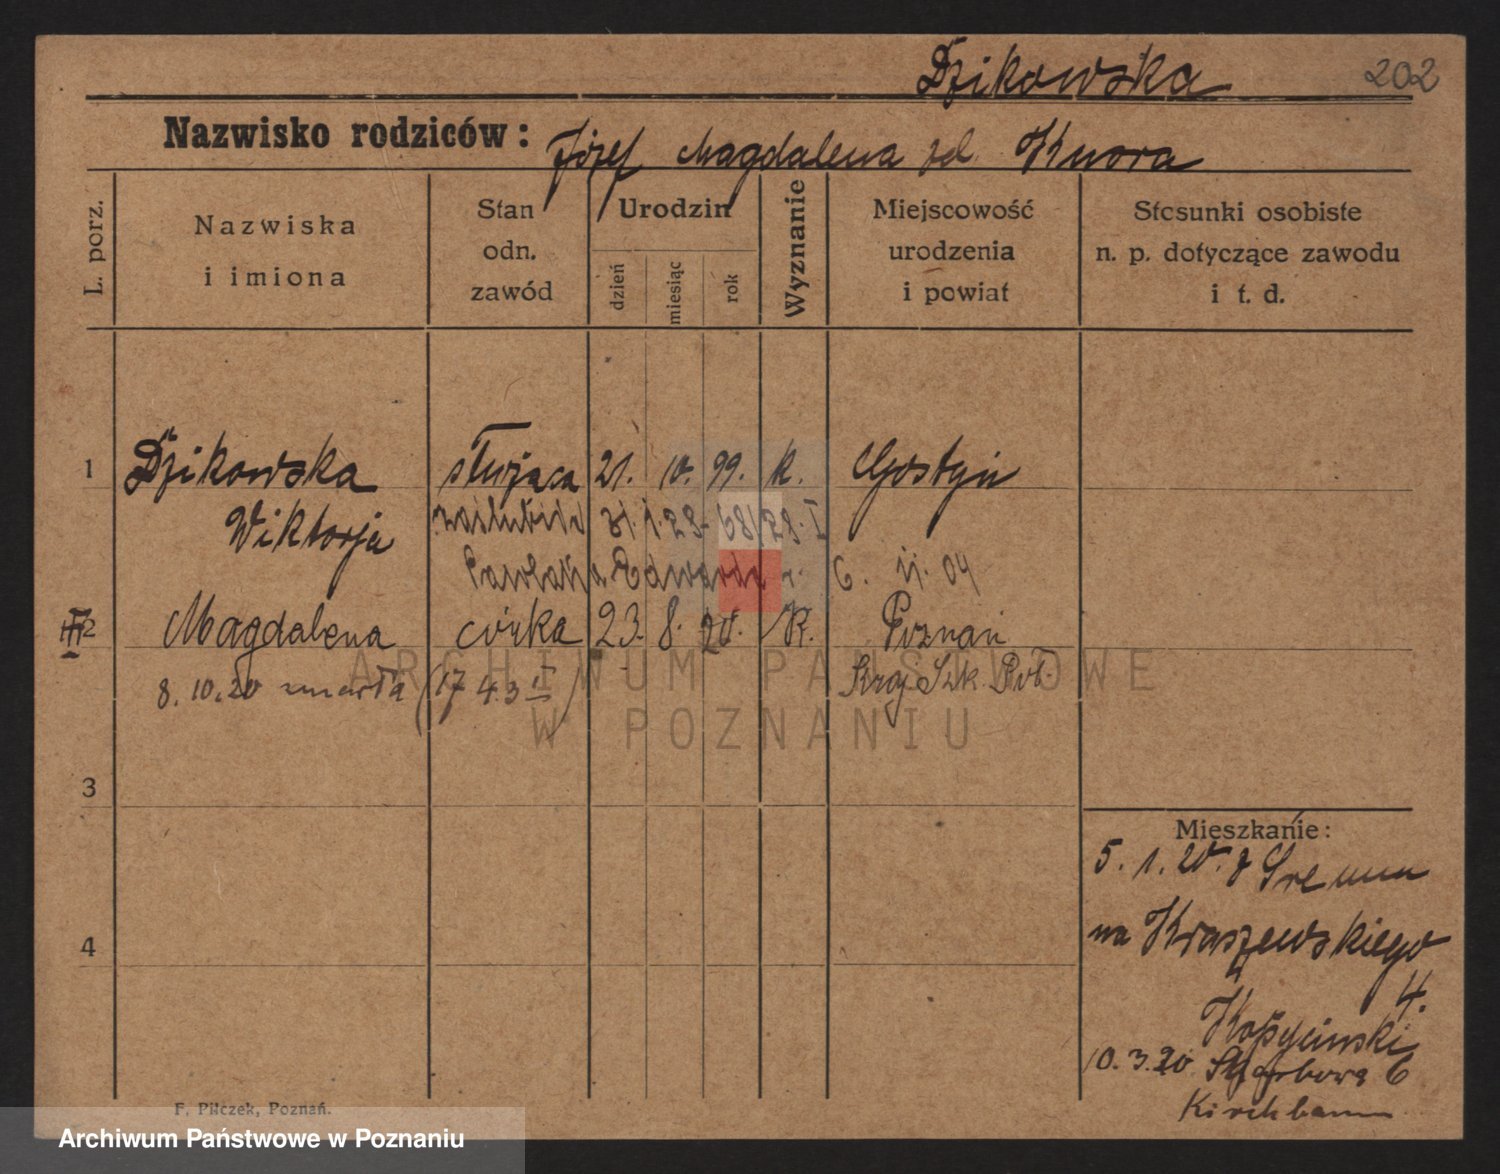 Dzikowska 202
Nazwisko rodziców: Józef Magdalena zd. Knora
L. porz.
Nazwiska
i imiona
Stan
odn.
zawód
Urodzin
dzień
miesiąc
rok
Wyznanie
Miejscowość
urodzenia
i powiat
Stosunki osobiste
n. p. dotyczące zawodu
i t. d.
1 Dzikowska służąca 21. 10. 99. k. Gostyń
Wiktorja 31.1.28- 68/28.I
Edwarda 6. 04
2 Magdalena córka 23. 8. 20. K. Poznań
8.10.20 zmarła (17 43 I) Kraj. Szk. Poł.
ARCHIWUM PAŃSTWOWE
W POZNANIU
3
4
Mieszkanie:
5. 1. 20. z Śremu
na Kraszewskiego
4.
10.3.20. Skarbowa 6
Kirchbaum
F. Pilczek, Poznań.
Archiwum Państwowe w Poznaniu